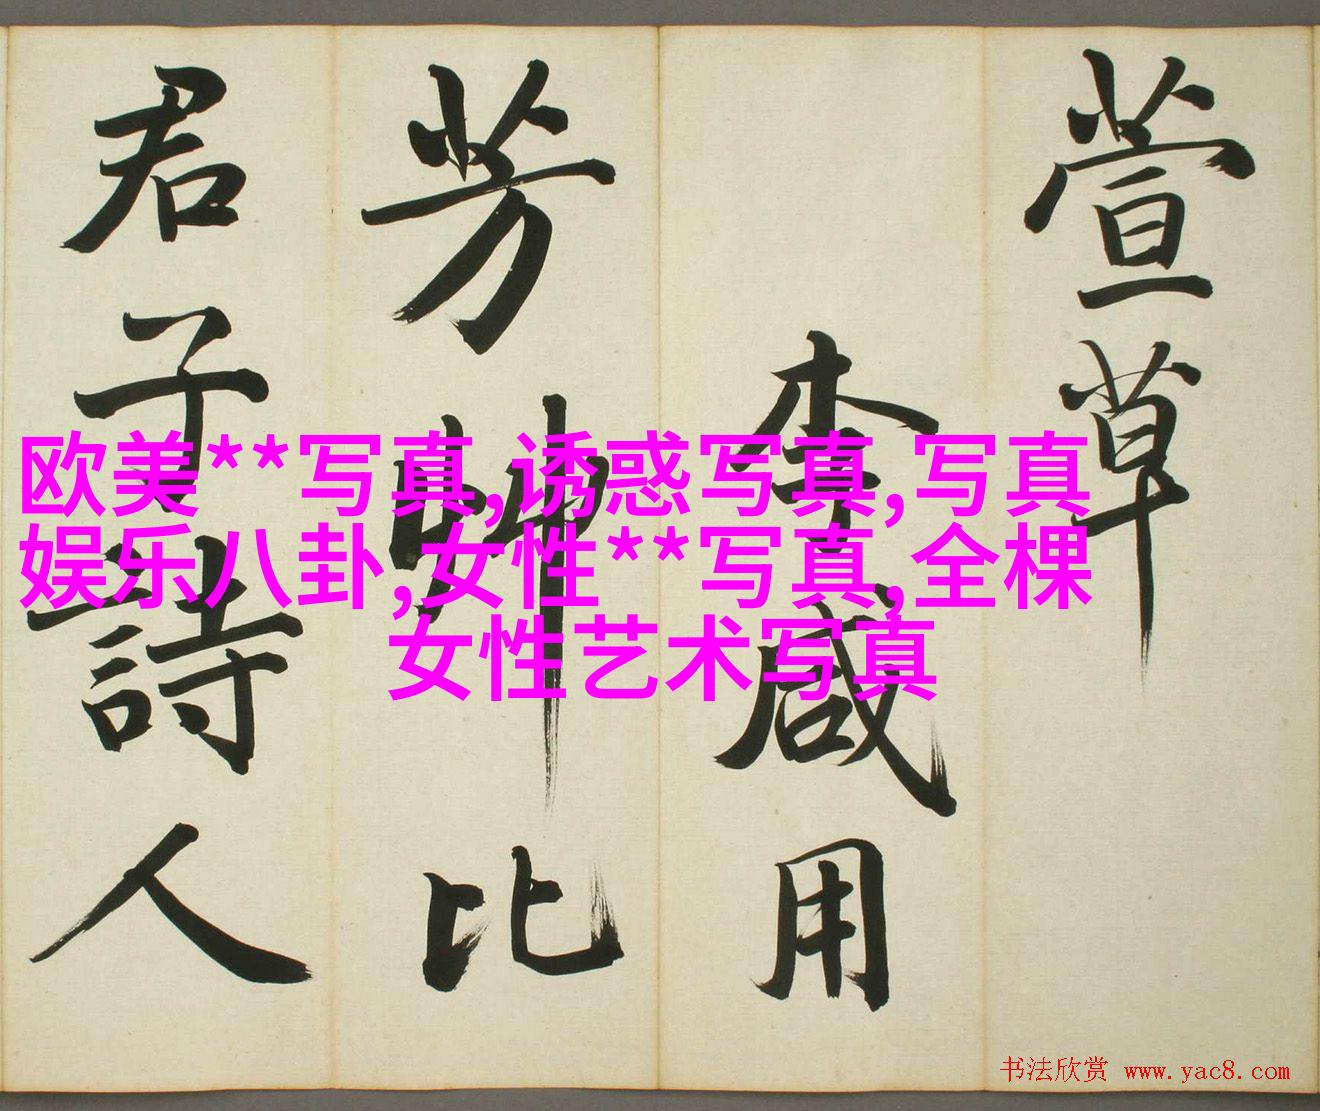 萱草
李咸用
芳艸比
君子詩人
欧美**写真,诱惑写真,写真
娱乐八卦,女性**写真,全棵
女性艺术写真
书法欣赏 www.yac8.com